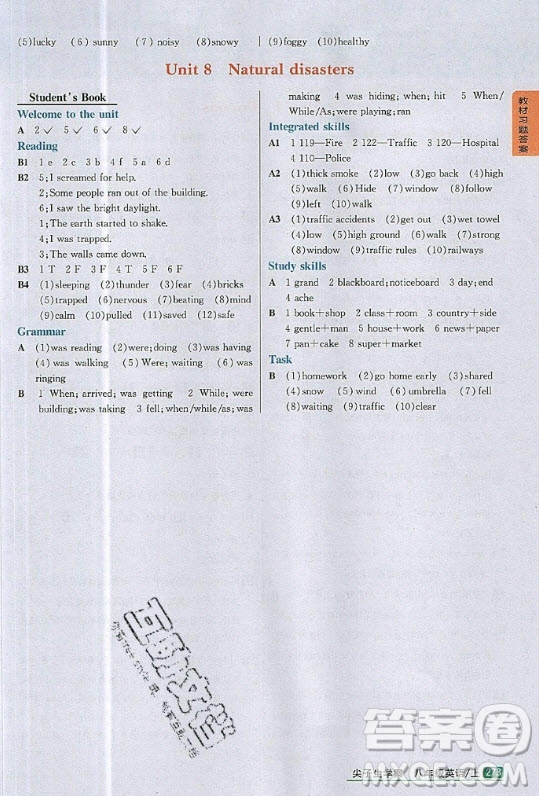 (5)lucky (6) sunny (7) noisy (8)snowy
(9)foggy (10)healthy
Unit 8 Natural disasters
Student's Book
Welcome to the unit
A 2✓ 5✓ 6✓ 8✓
Reading
B1 1e 2d 3f 4b 5a 6c
B2 5;I screamed for help.
2;Some people ran out of the building.
6;I saw the bright daylight.
1;The earth started to shake.
4;I was trapped.
3;The walls came down.
B3 1 T 2 F 3 F 4 T 5 F 6 F
B4 (1)sleeping (2)thunder (3)fear (4)bricks
(5)trapped (6)nervous (7)beating (8)mind
(9)calm (10)pulled (11)saved (12)safe
Grammar
A (1)was reading (2)were;doing (3)was having
(4)was walking (5)Were; waiting (6)was
ringing
B 1 When; arrived; was getting 2 While; were
building;was taking 3 fell;when/while/as; was
making 4 was hiding; when; hit 5 When/
While/As;were playing;ran
Integrated skills
A1 1 119—Fire 2 122—Traffic 3 120—Hospital
4 110—Police
A2 (1)thick smoke (2)low (3)go back (4)high
(5)walk (6)Hide (7)window (8)follow
(9)left (10)walk
A3 (1)traffic accidents (2)get out (3)wet towel
(4)low (5)high ground (6)walk (7)strong
(8)window (9)traffic rules (10)railways
Study skills
A 1 grand 2 blackboard;noticeboard 3 day;end
4 ache
B 1 book+shop 2 class+room 3 country+side
4 gentle+man 5 house+work 6 news+paper
7 pan+cake 8 super+market
Task
B (1)homework (2)go home early (3)shared
(4)snow (5)wind (6)umbrella (7)fell
(8)waiting (9)traffic (10)clear
教材习题答案
尖子生学案 八年级英语/上